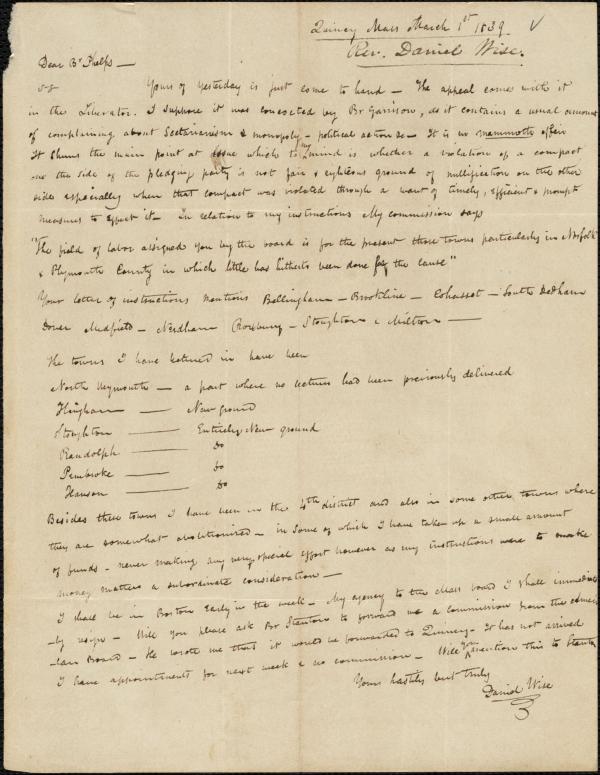 Quincy Mass March 1st 1839 √
Rev. Daniel Wise.
Dear Br Phelps —
Yours of yesterday is just come to hand — The appeal comes with it
in the Liberator. I suppose it was concocted by Br Garrison, as it contains a usual amount
of complaining about Sectarianism & monopoly — political action &c — It is no mammoth affair
It shuns the main point at issue which to my mind is whether a violation of a compact
one the side of the pledging party is not fair & righteous ground of nullification on the other
side especially when that compact was violated through a want of timely, efficient & prompt
measures to effect it — In relation to my instructions My commission says
"The field of labor assigned you by the board is for the present those towns particularly in Norfolk
& Plymouth County in which little has hitherto been done for the cause"
Your letter of instructions mentions Bellingham — Brookline — Cohasset — South Dedham
Dover Medfield — Needham Roxbury — Stoughton & Milton —
The towns I have lectured in have been
North Weymouth — a part where no lectures had been previously delivered
Hingham — New ground
Stoughton — Entirely New ground
Randolph — Do
Pembroke — Do
Hanson — Do
Besides these towns I have been in the 4th district and also in some other towns where
they are somewhat abolitionized — in some of which I have taken up a small amount
of funds — never making any very special effort however as my instructions were to make
money matters a subordinate consideration —
I shall be in Boston Early in the week — My agency to the Mass board I shall immediate
-ly resign — Will you please ask Br Stanton to forward me a commission from the Ameri
-can Board — He wrote me that it would be forwarded to Quincy — It has not arrived
I have appointments for next week & no commission — Will you mention this to Stanton
Yours hastily but truly
Daniel Wise